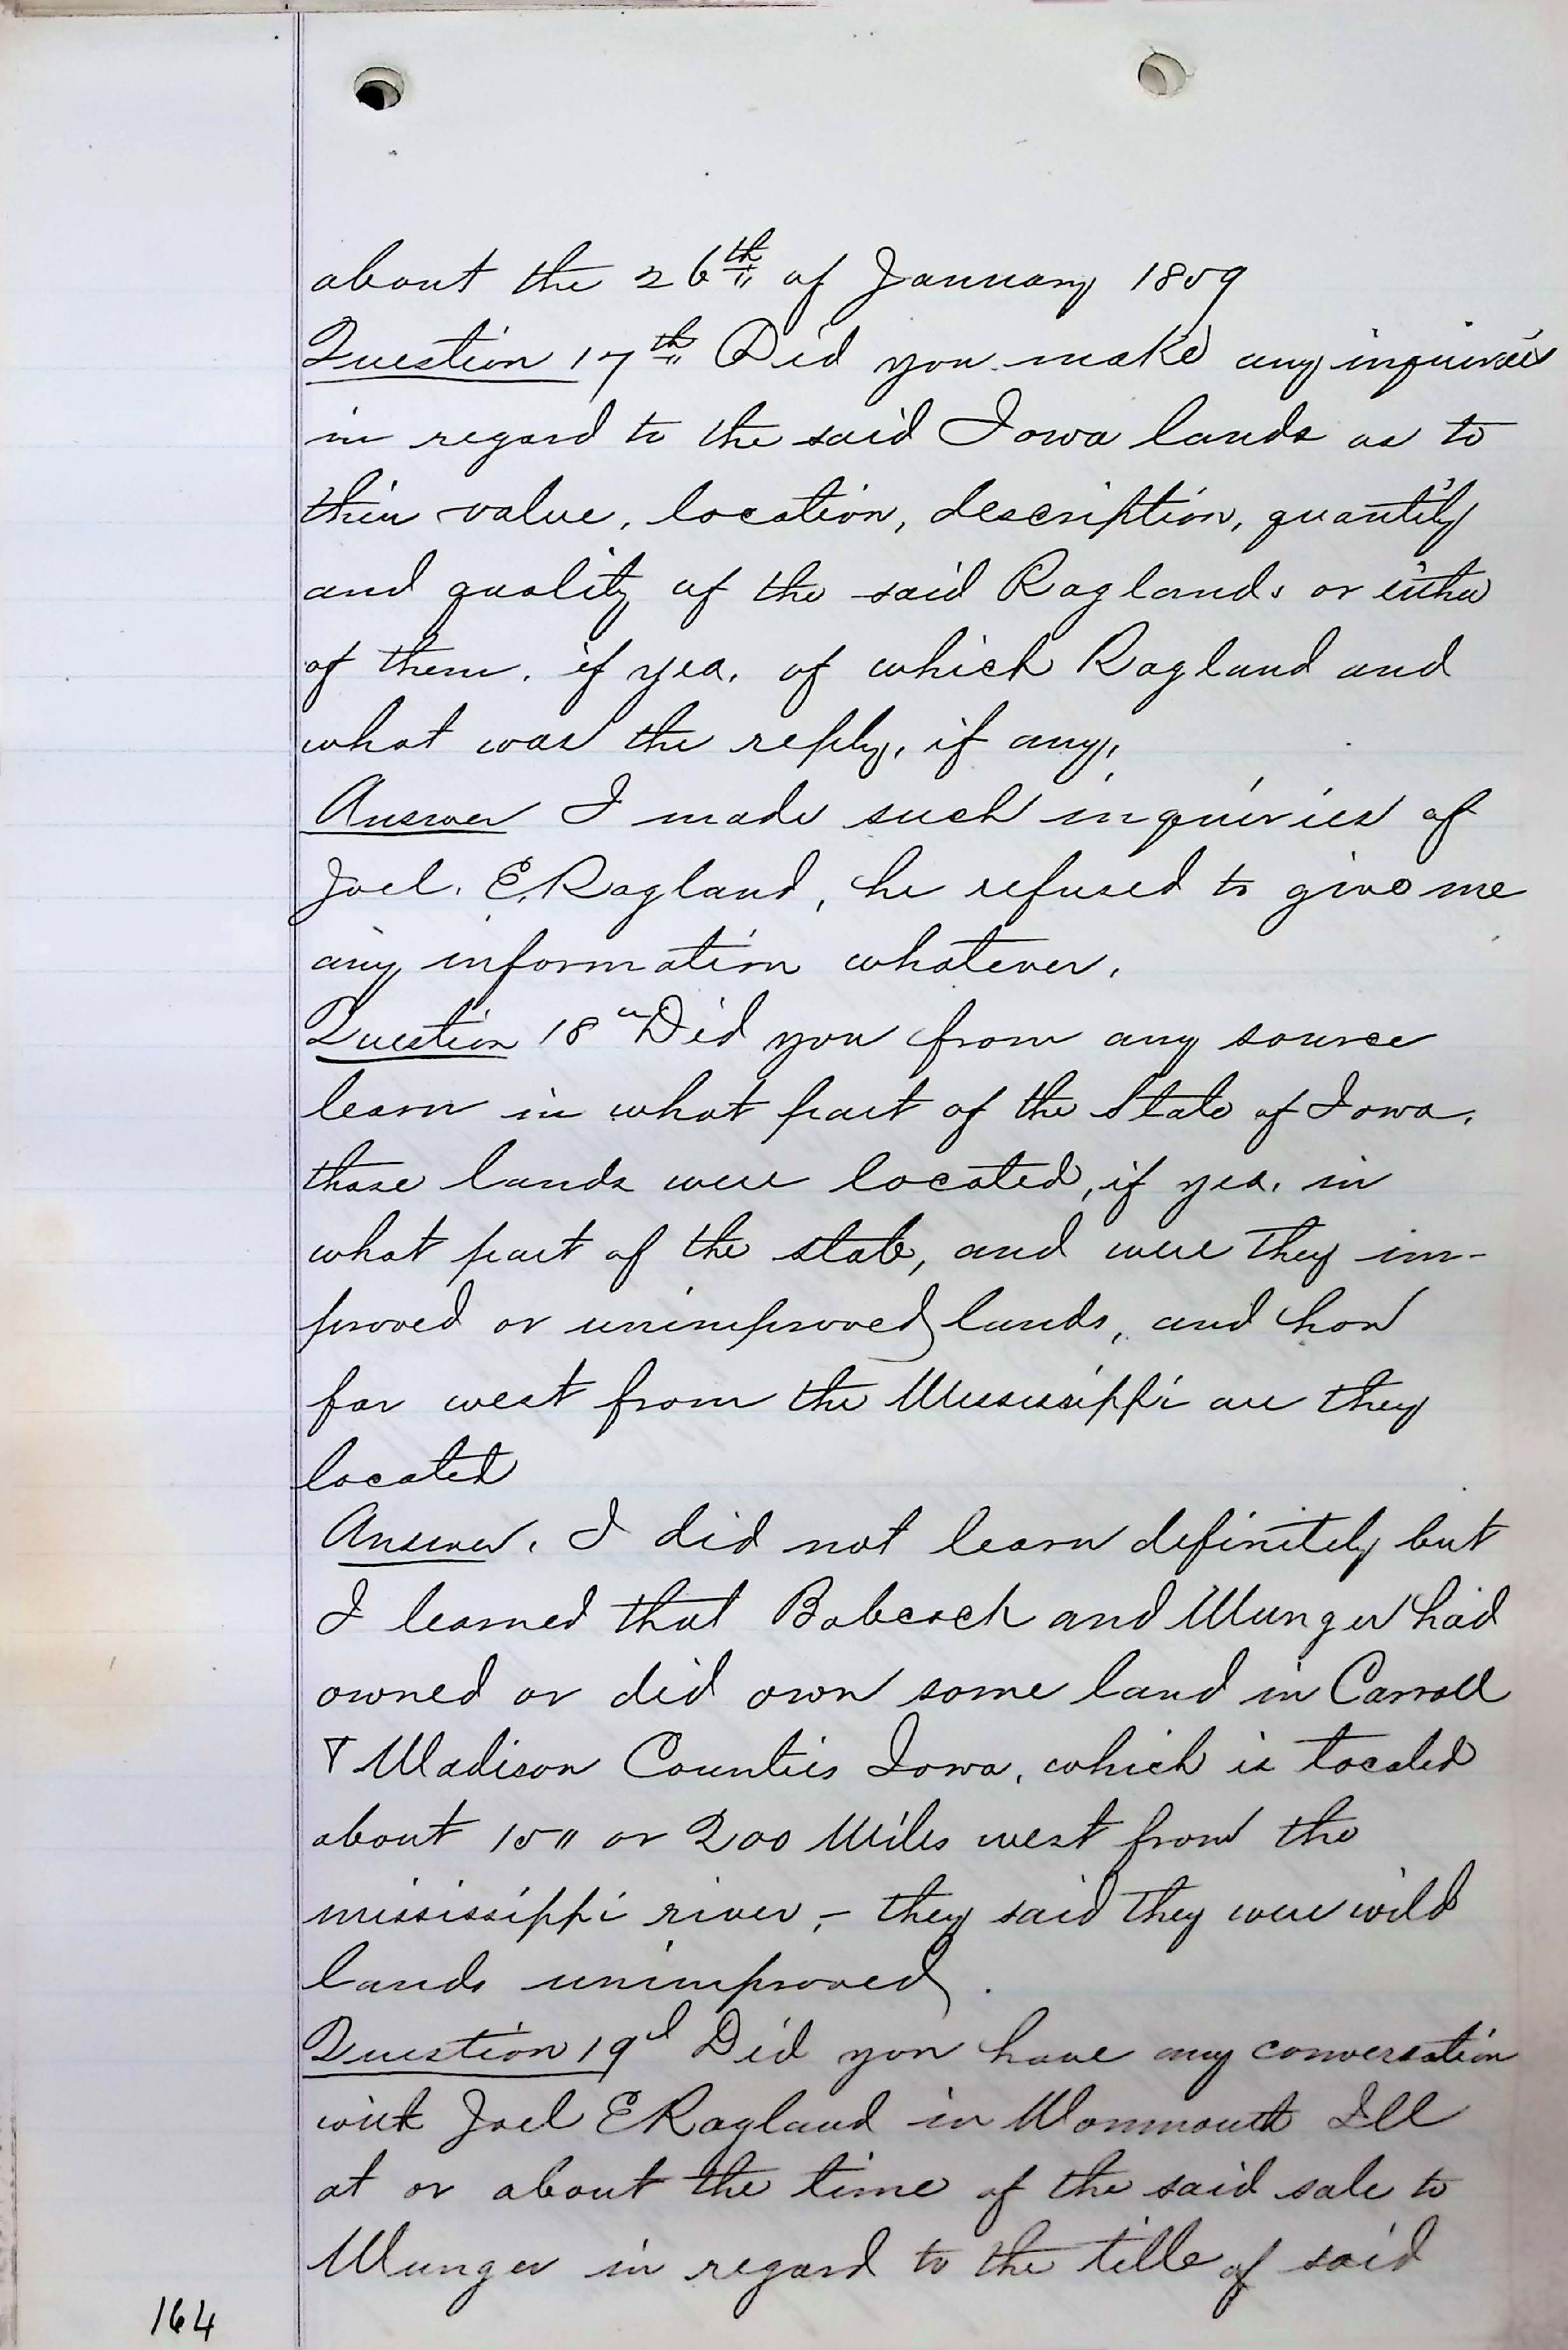 about the 26th of January 1859
Question 17th Did you make any inquiries
in regard to the said Iowa lands as to
their value, location, description, quantity
and quality of the said Raglands or either
of them, if yea, of which Ragland and
what was the reply, if any,
Answer I made such inquiries of
Joel. E. Ragland, he refused to give me
any information whatever.
Question 18" Did you from any source
learn in what part of the State of Iowa,
those lands were located, if yea, in
what part of the state, and were they im-
proved or unimproved lands, and how
far west from the Mississippi are they
located
Answer. I did not learn definitely but
I learned that Babcock and Munger had
owned or did own some land in Carroll
& Madison Counties Iowa, which is located
about 150 or 200 Miles west from the
mississippi river, - they said they were wild
lands unimproved.
Question 19d Did you have any conversation
with Joel E Ragland in Monmouth Ill
at or about the time of the said sale to
Munger in regard to the title of said
164